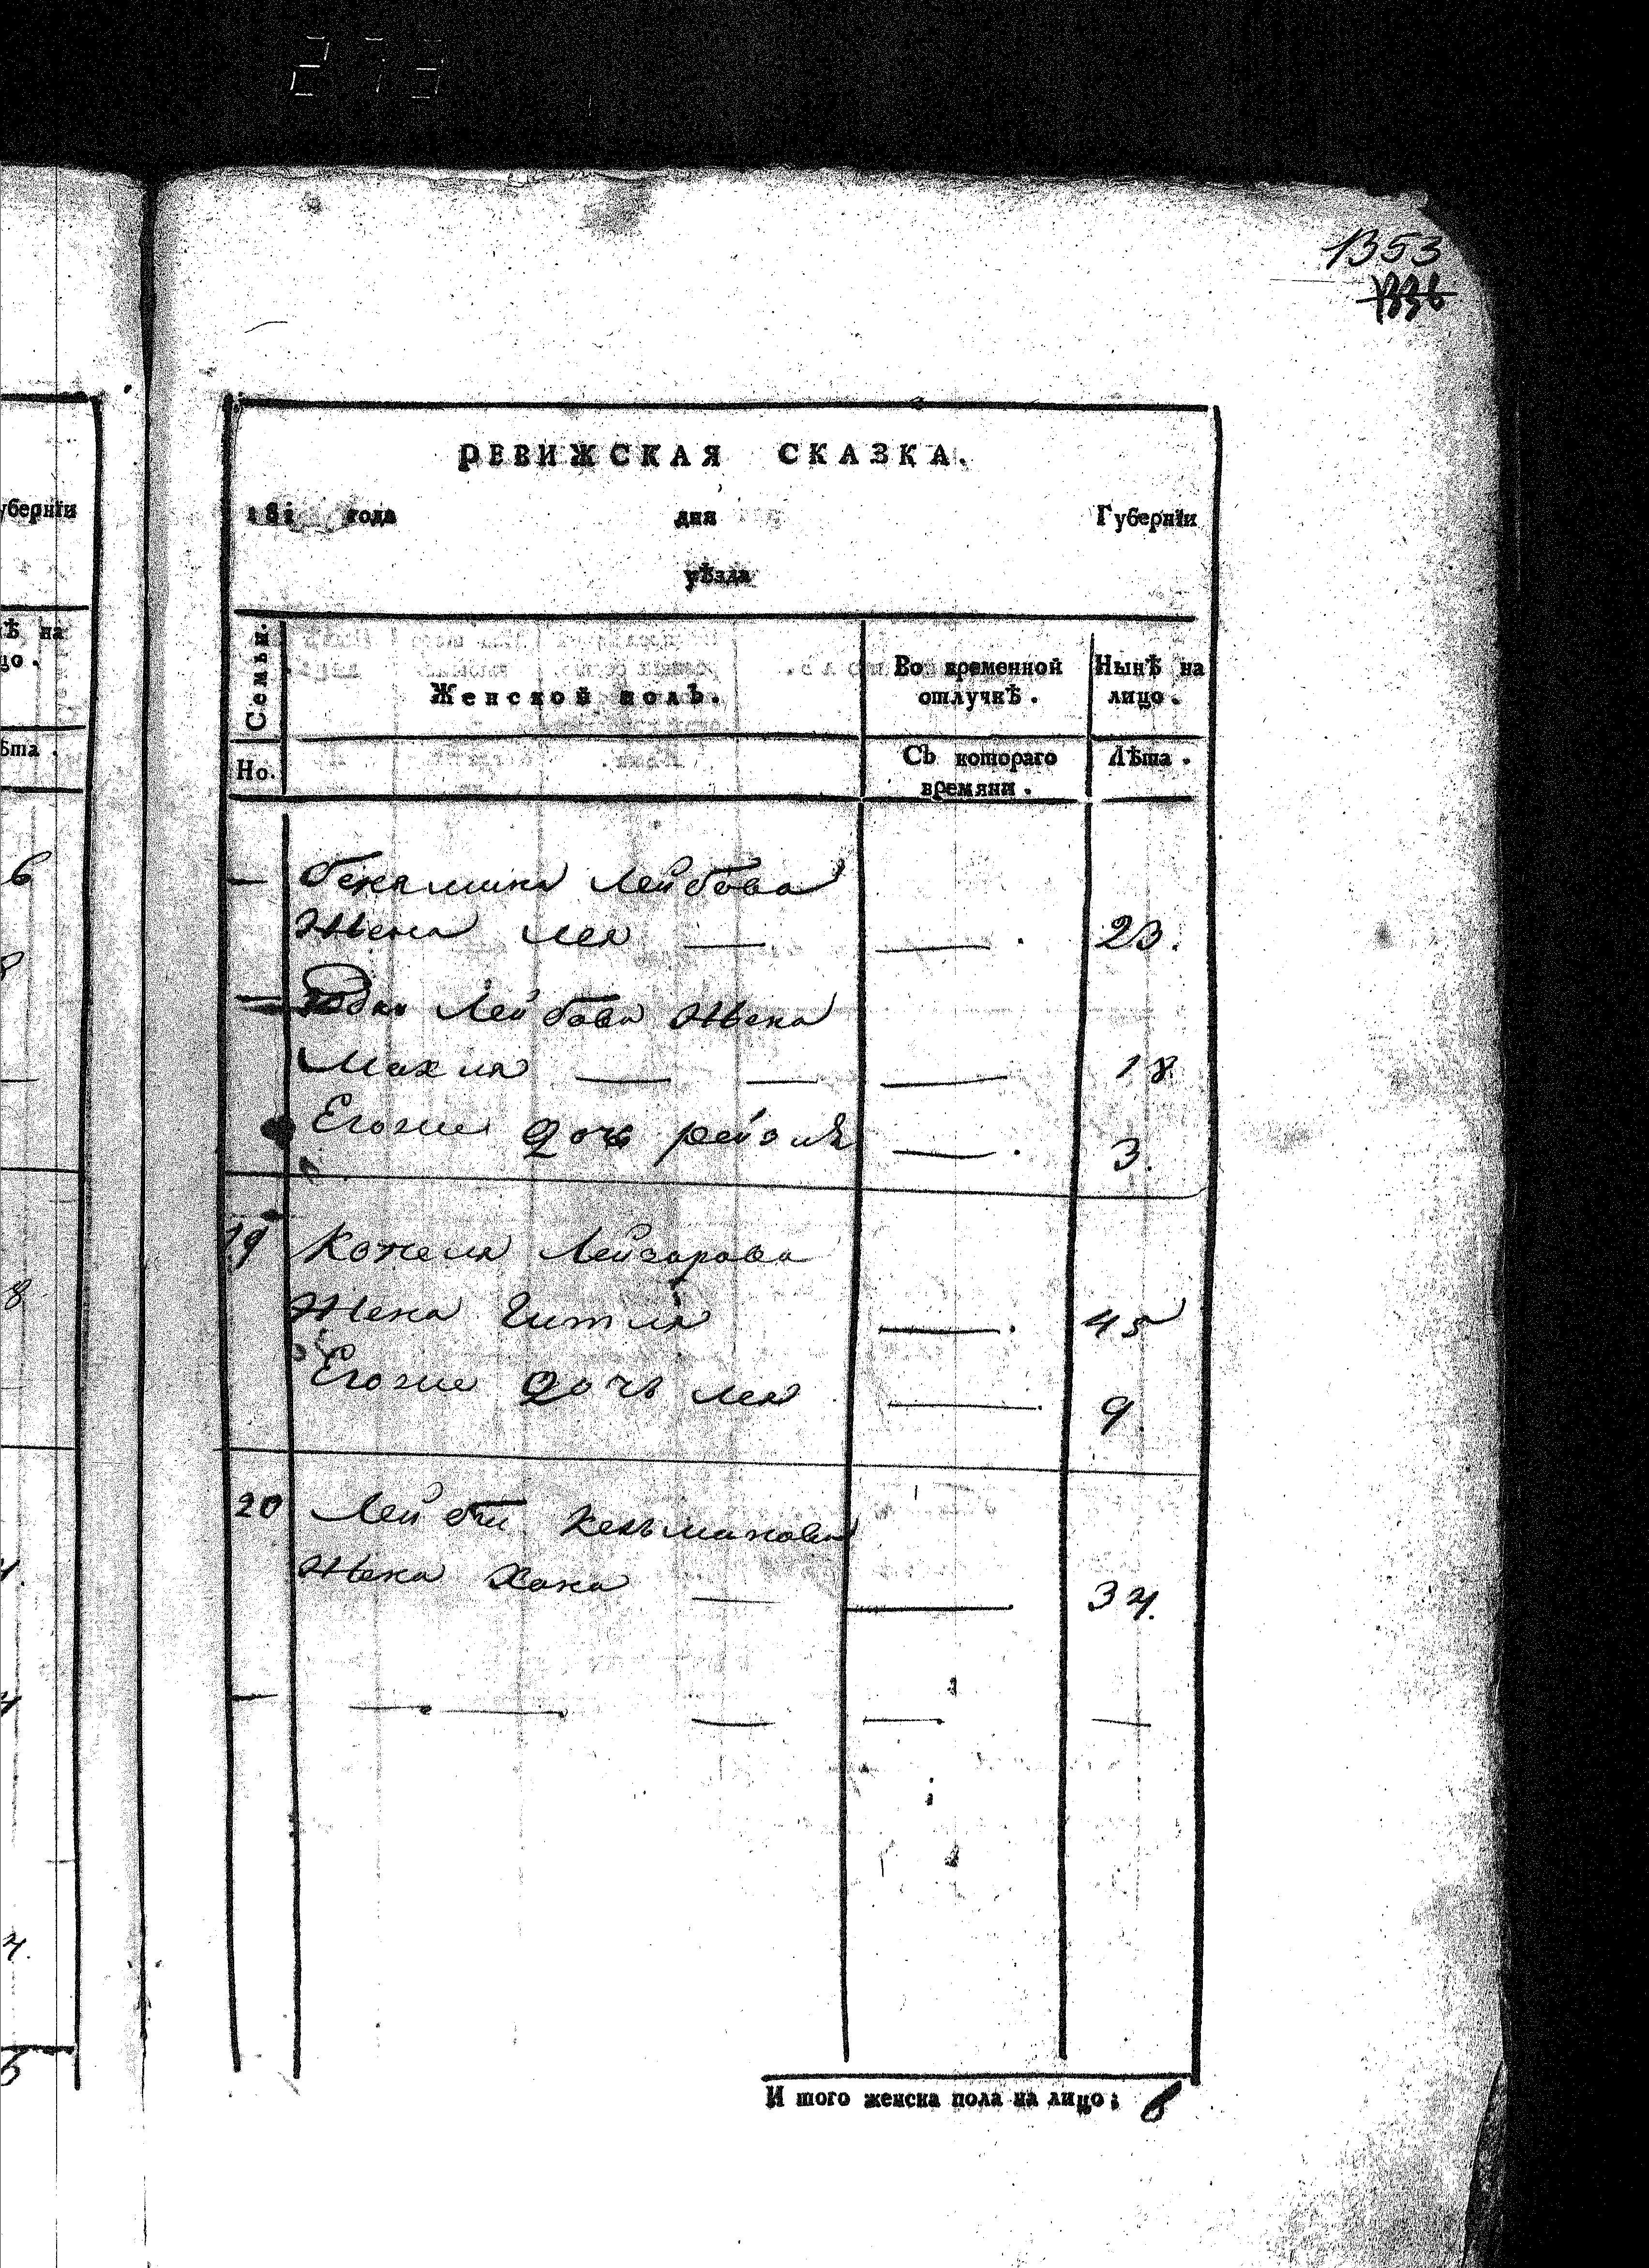 1353
1336
РЕВИЖСКАЯ СКАЗКА.
181 года дня Губернїи
уѣзда
Семьи.
Женской полъ.
Во временной отлучкѣ.
Нынѣ на лицо.
Но.
Съ котораго времяни.
Лѣта.
— Лейбова
Жена Лея — — 23.
— Лейбова Жена
Махля — — — 18
Егоже дочь рейзля — 3.
19 Лейзорова
Жена Гитля — 45
Егоже дочь лея — 9.
20 Лейбы Кельманова
Жена Хана — — 34.
И того женска пола на лицо: 6
уберніи
ѣта.
6
8